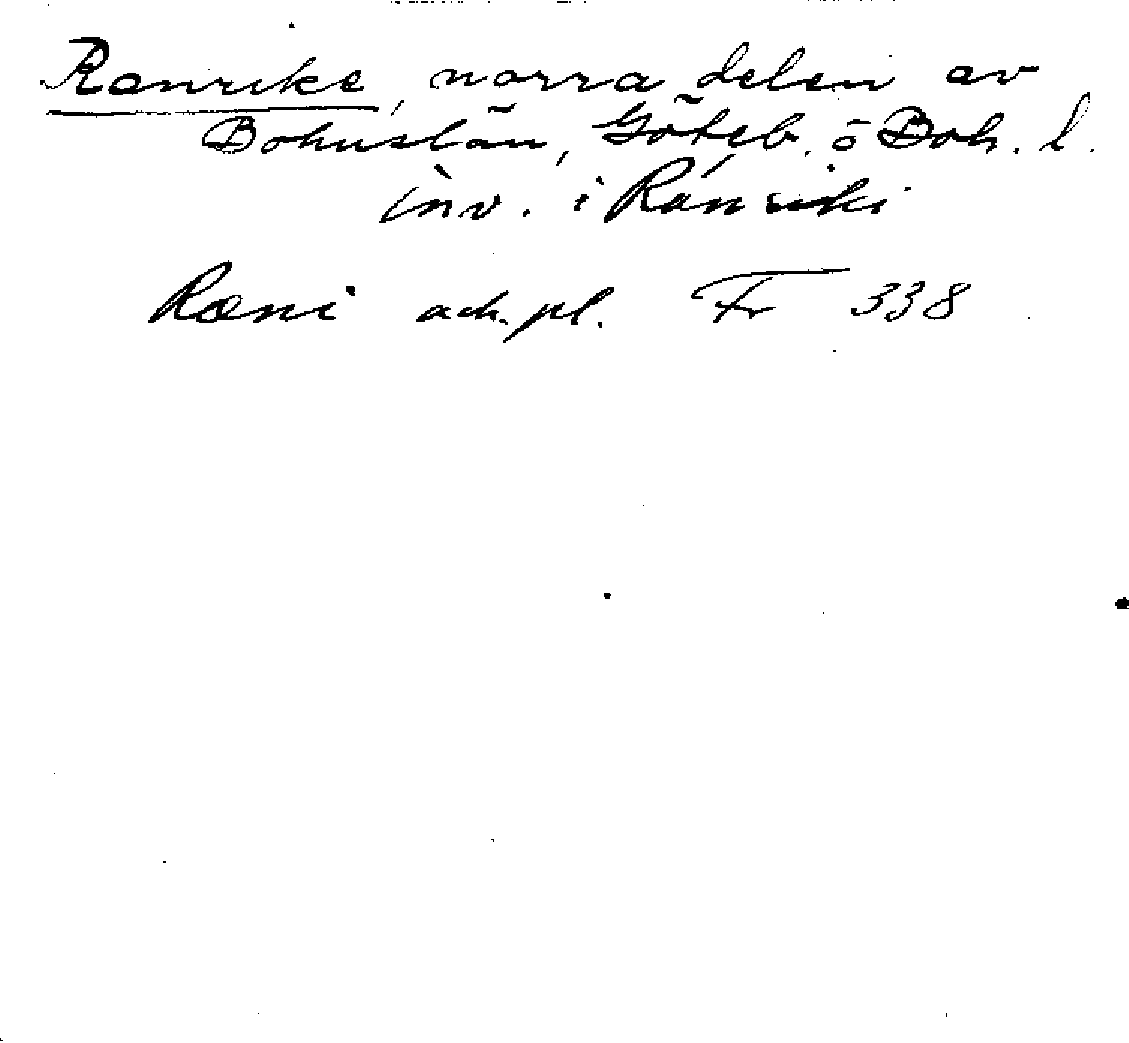 Ranrike, norra delen av
Bohuslän, Göteb. o Boh. l.
inv. i Ránríki
Ræni ack. pl. Fr 338